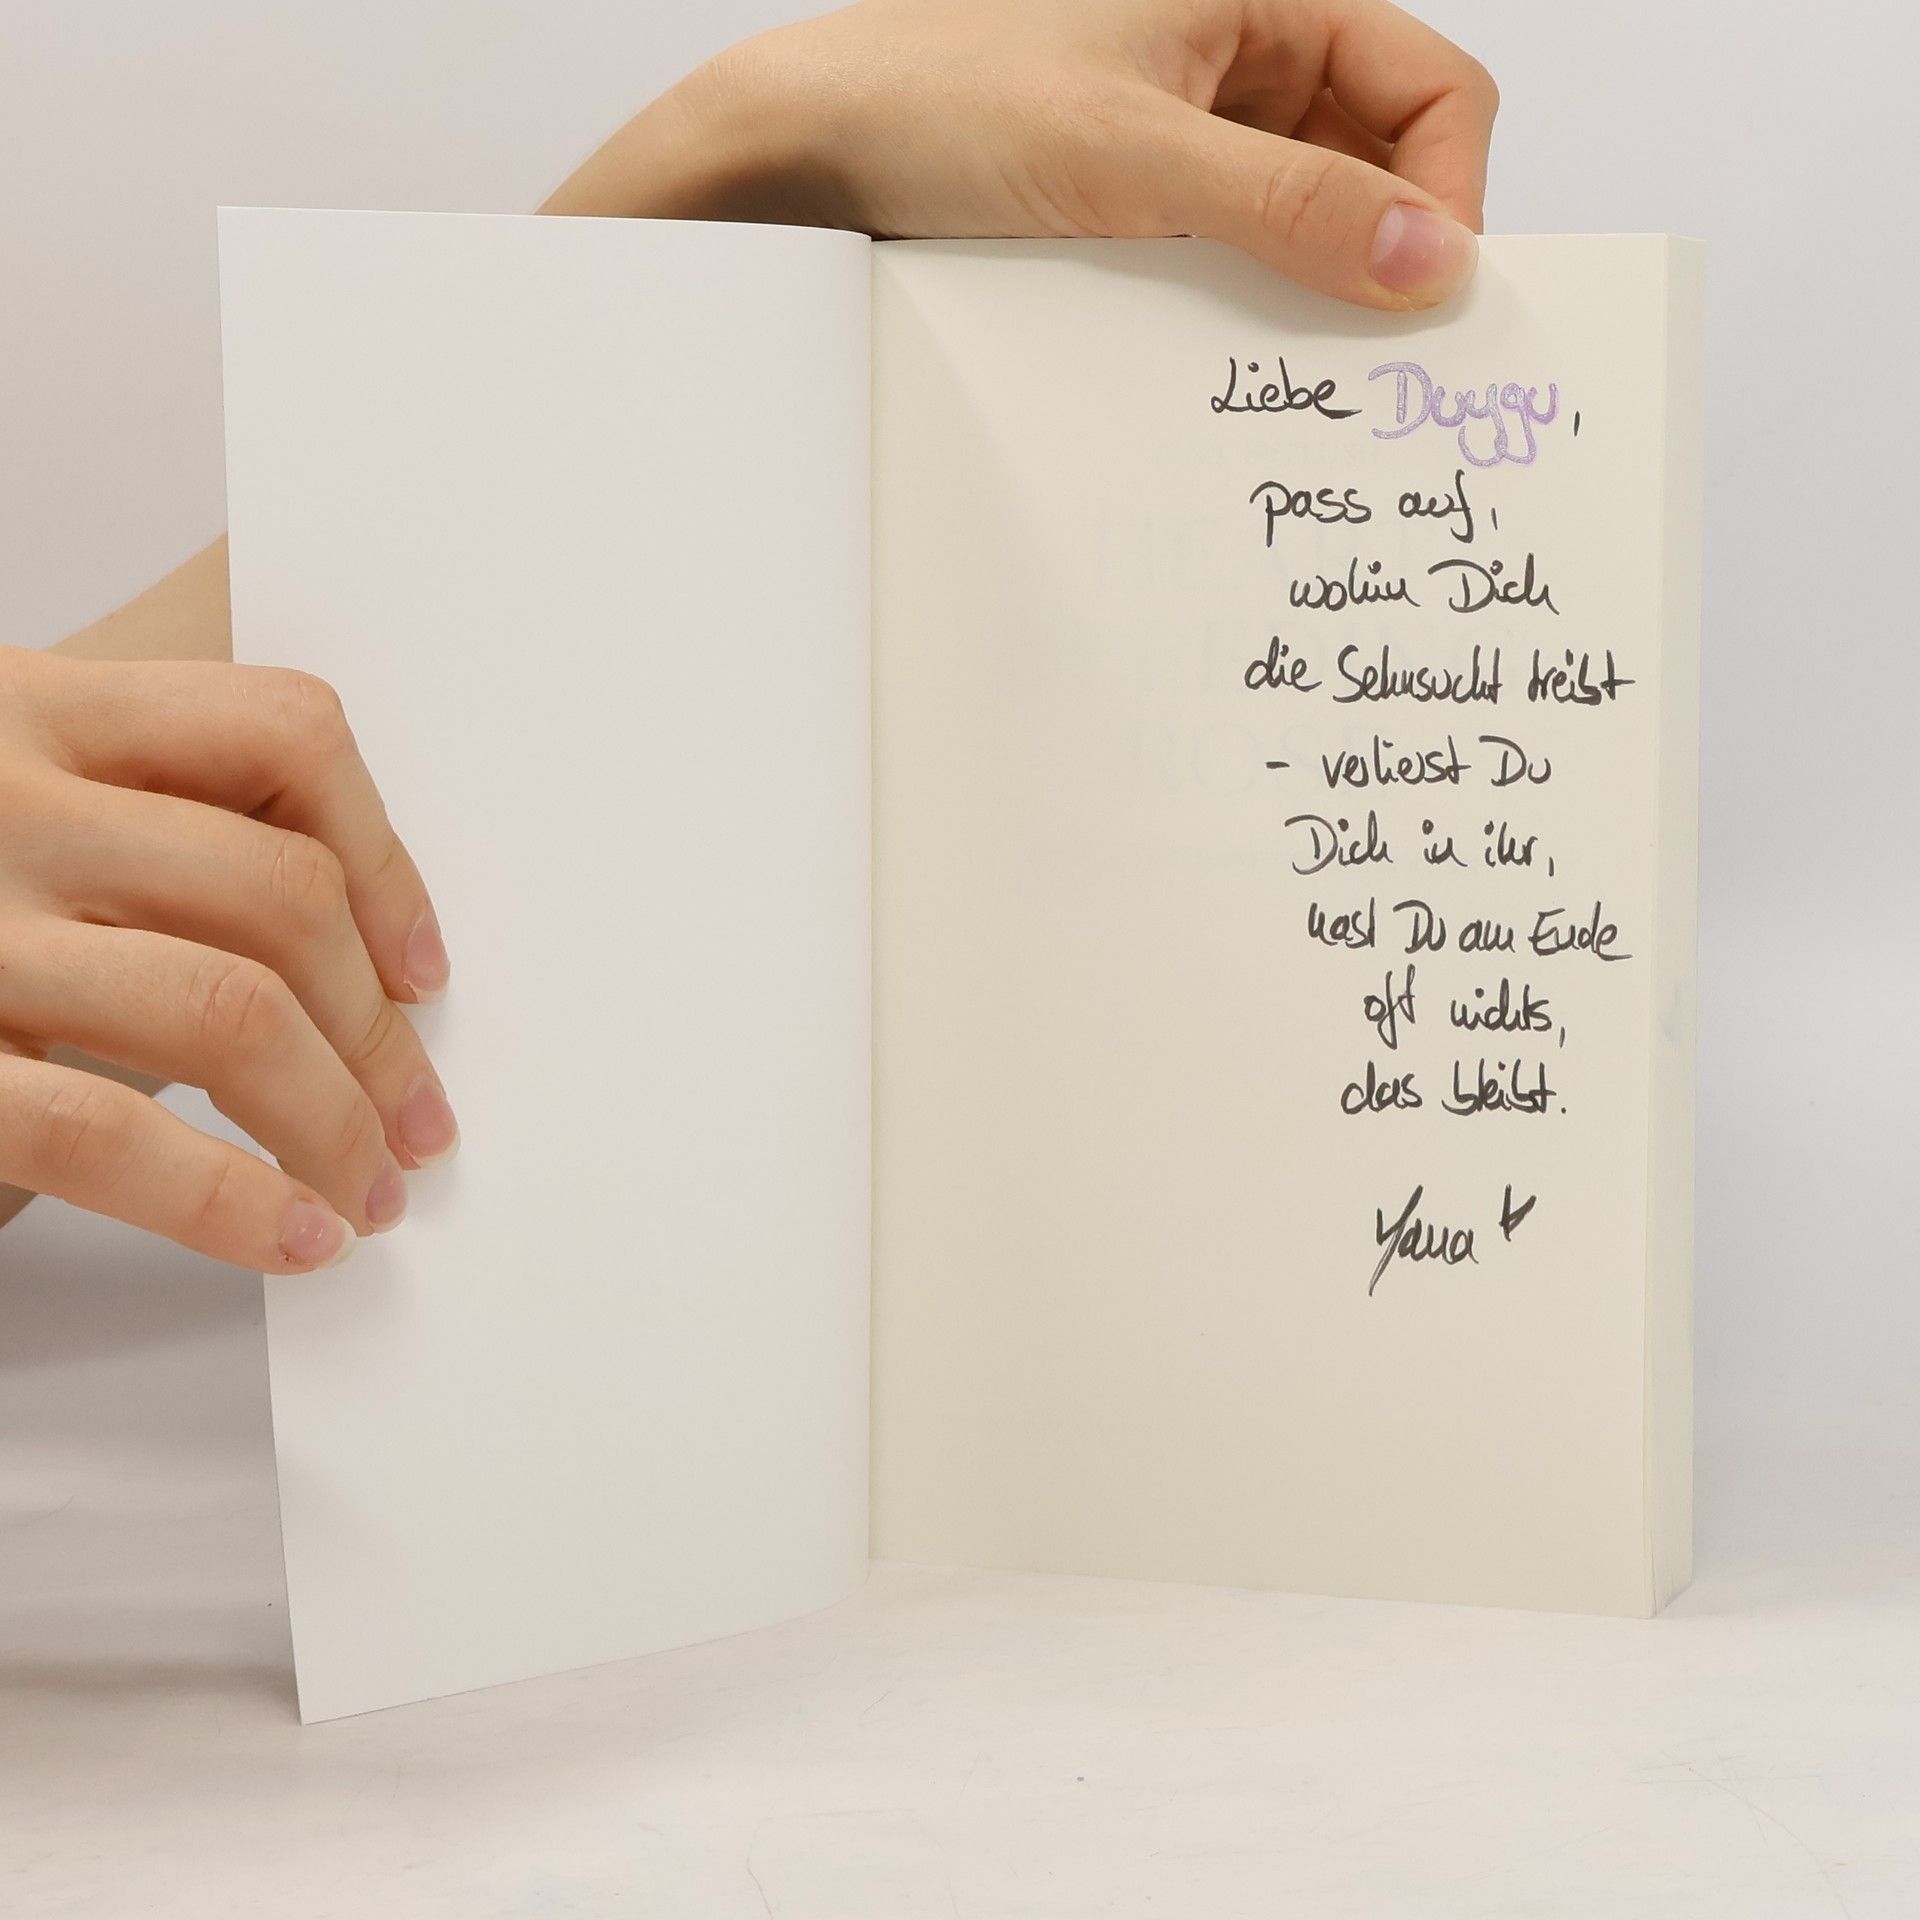 Liebe Duygu,
pass auf,
wohin Dich
die Sehnsucht treibt
- verlierst Du
Dich in ihr,
hast Du am Ende
oft nichts,
das bleibt.
Yana